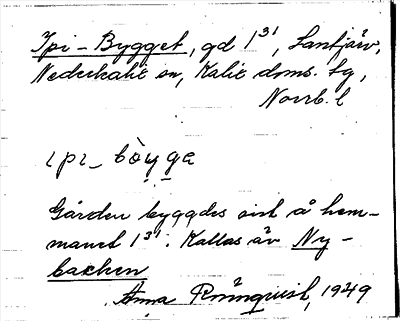 Ipi-Bygget, gd 1³¹, Santjärv,
Nederkalix sn, Kalix doms. sg,
Norrb. l
ıpı_ bòyga
Gården byggdes sist å hem-
manet 1³¹. Kallas äv Ny-
backen
Anna Rönnquist, 1949